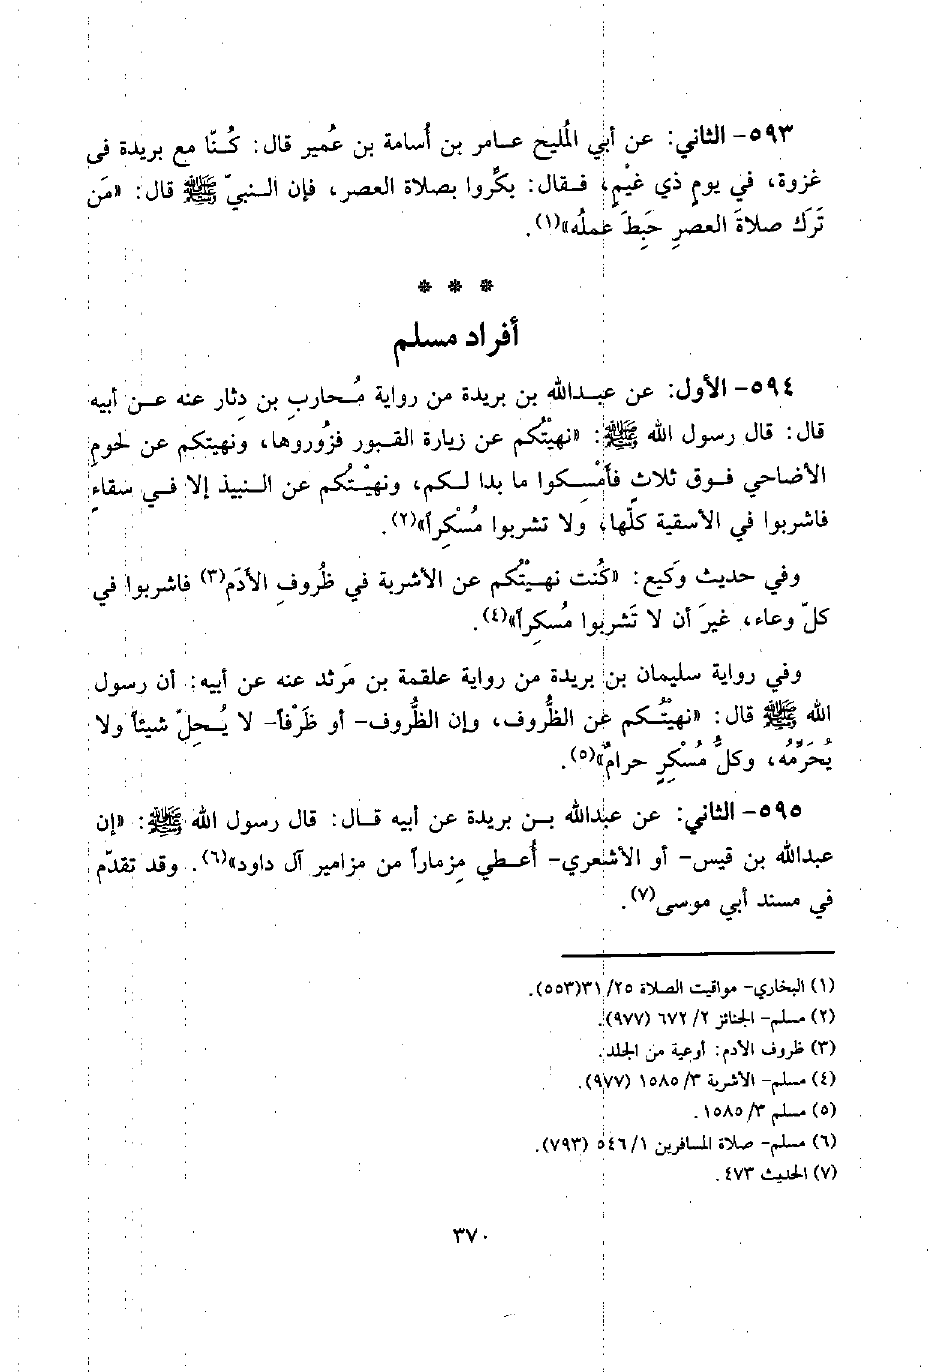 ٥٩٣- الثاني: عن أبي المُليح عامر بن أُسامة بن عُمير قال: كُنّا مع بريدة في
غزوة، في يومٍ ذي غيْمٍ، فقال: بكِّروا بصلاة العصر، فإن النبيّ ﷺ قال: «مَن
تَرَك صلاةَ العصرِ حَبِطَ عملُه»(١).
* * *
أفراد مسلم
٥٩٤- الأول: عن عبدالله بن بريدة من رواية مُحاربِ بن دِثار عنه عن أبيه
قال: قال رسول الله ﷺ: «نهيتُكم عن زيارة القبور فزُوروها، ونهيتكم عن لحومِ
الأضاحي فوق ثلاثٍ فأمْسِكوا ما بدا لكم، ونهيْتُكم عن النبيذ إلا في سقاءٍ
فاشربوا في الأسقية كلّها، ولا تشربوا مُسْكِراً»(٢).
وفي حديث وكَيع: «كُنت نهيْتُكم عن الأشربة في ظُروفِ الأدَم(٣) فاشربوا في
كلّ وعاء، غيرَ أن لا تَشربوا مُسكِراً»(٤).
وفي رواية سليمان بن بريدة من رواية علقمة بن مَرثد عنه عن أبيه: أن رسول
الله ﷺ قال: «نهيتُكم عن الظُّروف، وإن الظُّروف- أو ظَرْفاً- لا يُحِلّ شيئاً ولا
يُحَرِّمُه، وكلُّ مُسْكِرٍ حرامٌ»(٥).
٥٩٥- الثاني: عن عبدالله بن بريدة عن أبيه قال: قال رسول الله ﷺ: «إن
عبدالله بن قيس- أو الأشعري- أُعطي مِزماراً من مزامير آل داود»(٦). وقد تقدّم
في مسند أبي موسى(٧).
(١) البخاري- مواقيت الصلاة ٢٥/ ٣١(٥٥٣).
(٢) مسلم- الجنائز ٢/ ٦٧٢ (٩٧٧).
(٣) ظروف الأدم: أوعية من الجلد.
(٤) مسلم- الأشربة ٣/ ١٥٨٥ (٩٧٧).
(٥) مسلم ٣/ ١٥٨٥.
(٦) مسلم- صلاة المسافرين ١/ ٥٤٦ (٧٩٣).
(٧) الحديث ٤٧٣.
٣٧٠